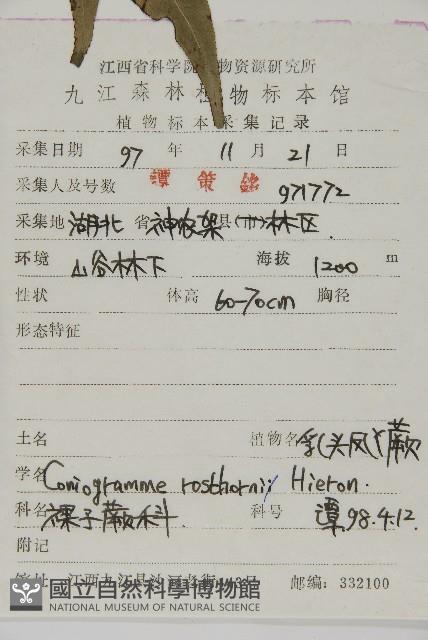 江西省科学院 物资源研究所
九江森林植物标本馆
植物标本采集记录
采集日期 97 年 11 月 21 日
采集人及号数 譚策銘 971772
采集地 湖北 省 神农架 县(市)林区.
环境 山谷林下 海拔 1200 m
性状 体高 60-70cm 胸径
形态特征
土名 植物名 乳头凤丫蕨
学名 Coniogramme rosthornii Hieron.
科名 裸子蕨科 科号 譚.98.4.12.
附记
江西九江县沙河 邮编: 332100
國立自然科學博物館
NATIONAL MUSEUM OF NATURAL SCIENCE